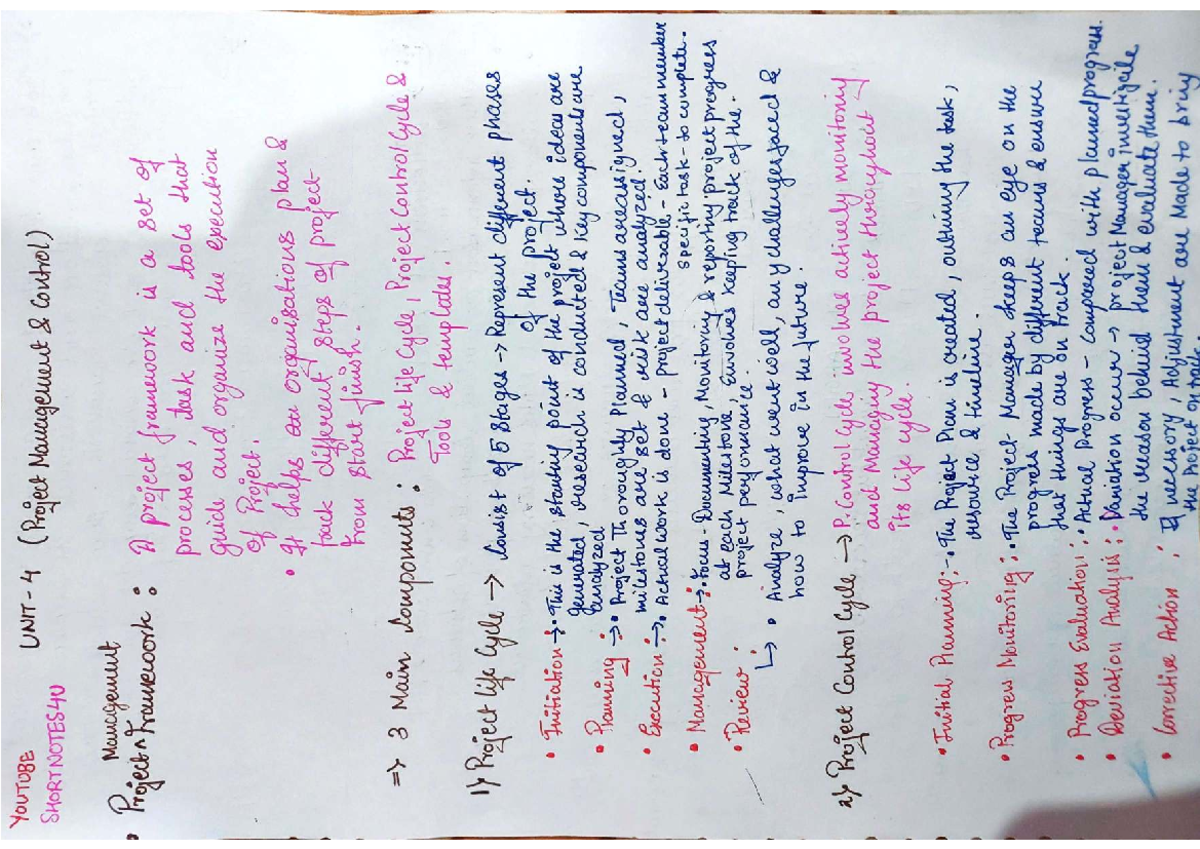 YOUTUBE
SHORTNOTES4U
UNIT-4 (Project Management & Control)
Management
• Project ^ Framework :
A project framework is a set of
processes, task and tools that
guide and organize the execution
of Project.
• It helps an organisations plan &
track different steps of project
from start finish.
=> 3 Main Components : Project Life Cycle, Project Control Cycle &
Tools & templates.
1) Project Life Cycle -> Consist of 5 Stages -> Represent different phases
of the project.
• Initiation ->• This is the starting point of the project where ideas are
generated, research is conducted & key component are
analyzed
• Planning ->• Project Thoroughly Planned, Teams are assigned,
milestones are set & risk are analyzed.
• Execution ->• Actual work is done - project deliverable - Each team member
specific task - to complete.
• Management :• Focus - Documenting, Monitoring & reporting project progress
at each Milestone, Envolves keeping track of the
project performance.
• Review :
↳ • Analyze, what went well, any challenges faced &
how to improve in the future.
2) Project Control Cycle -> P. Control Cycle involves actively monitoring
and Managing the project throughout
its life cycle.
• Initial Planning :-• The Project Plan is created, outlining the task,
resource & timeline.
• Progress Monitoring :• The Project Manager keeps an eye on the
progress made by different teams & ensure
that things are on track.
• Progress Evaluation :• Actual Progress - compared with planned progress.
• Deviation Analysis :• Deviation occur -> project Manager investigate
the reason behind them & evaluate them.
• Corrective Action : If necessary, Adjustment are Made to bring
the project on track.